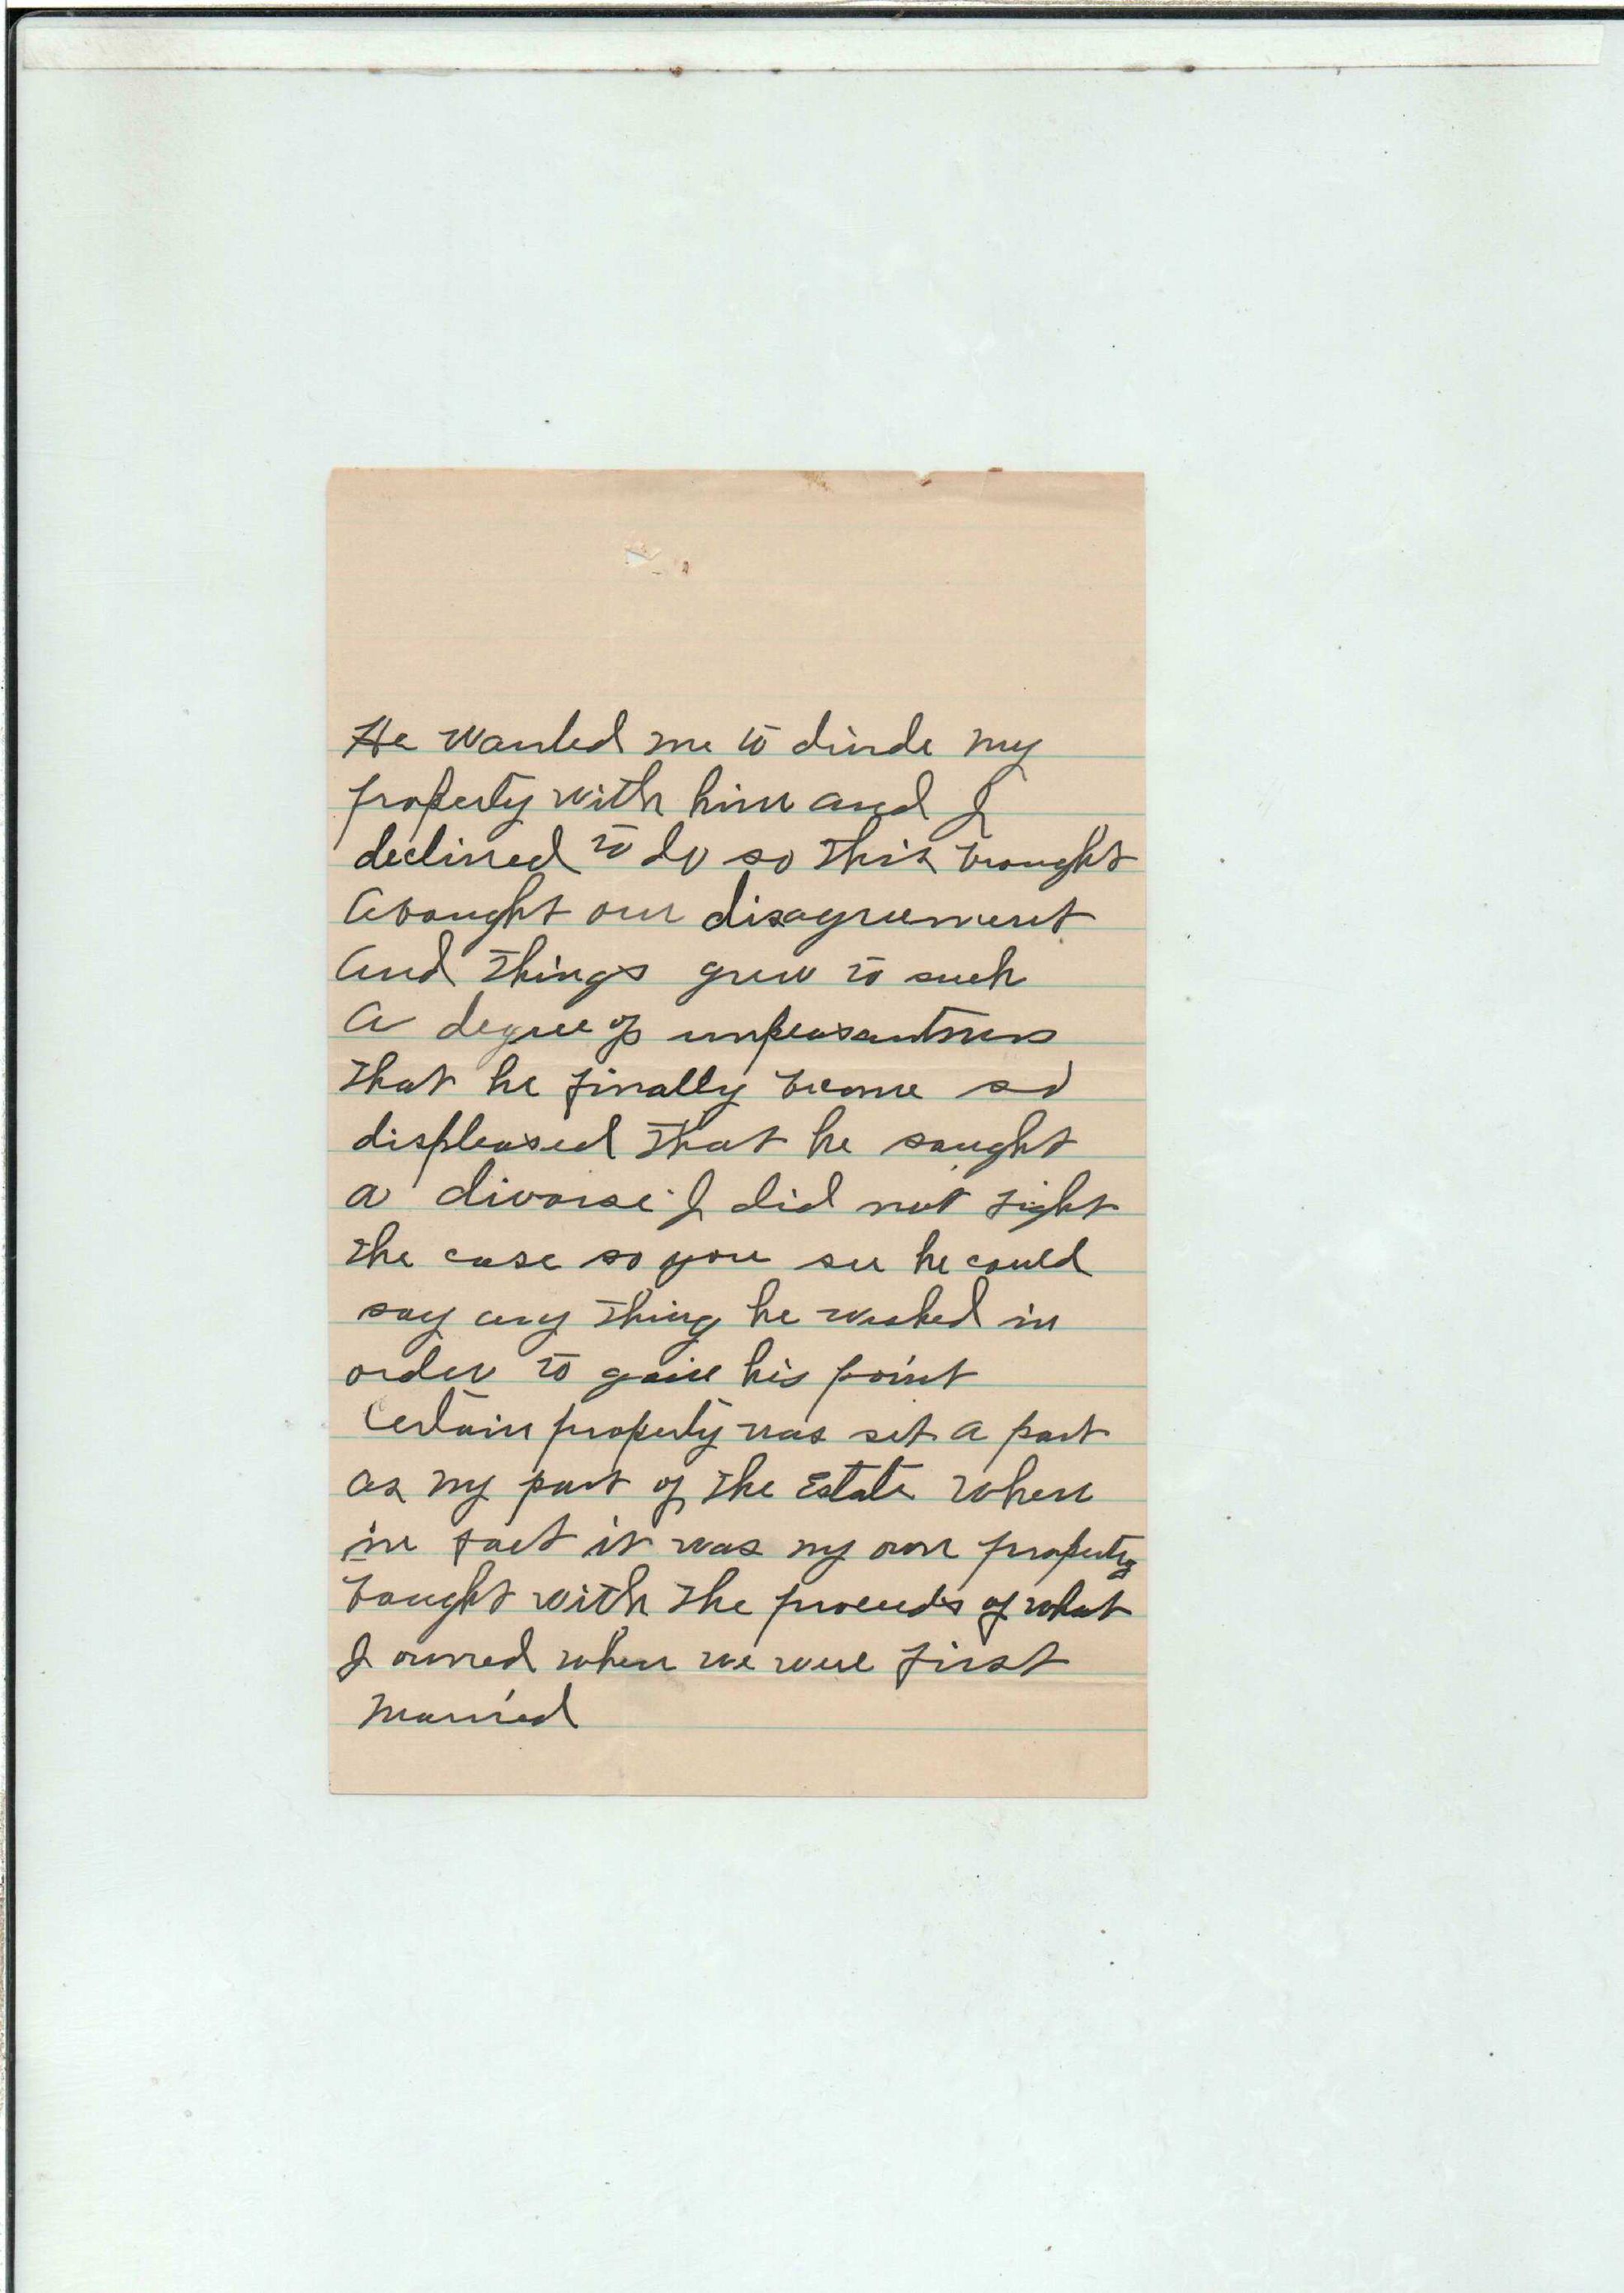 He wanted me to divide my
property with him and I
declined to do so this brought
abought our disagreement
and things grew to such
a degree of unpleasantness
that he finally become so
displeased that he sought
a divorse I did not fight
the case so you see he could
say any thing he wished in
order to gain his point
Certain property was set a part
as my part of the Estate when
in fact it was my own property
bought with the proceeds of what
I owned when we were first
married